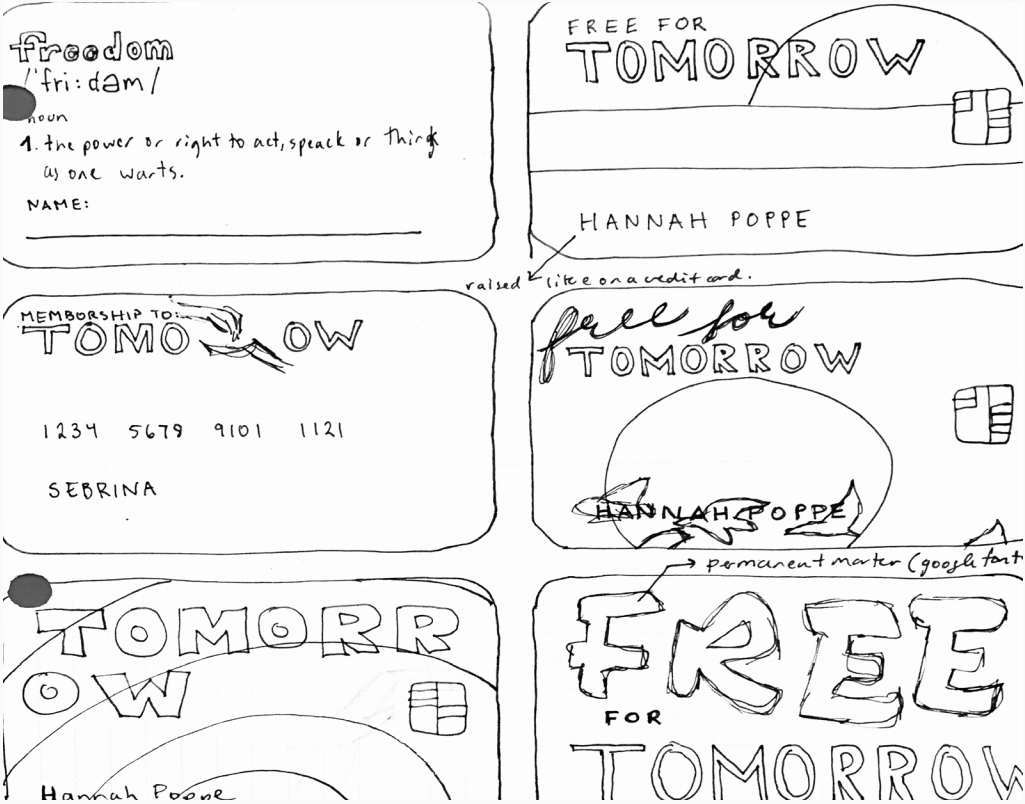 freedom
/'fri:dəm/
noun
1. the power or right to act, speack or think
as one warts.
NAME:
FREE FOR
TOMORROW
HANNAH POPPE
raised like on a credit card.
MEMBORSHIP TO:
TOMO OW
1234 5678 9101 1121
SEBRINA
free for
TOMORROW
HANNAH POPPE
permanent marter (google font
TOMORR
OW
Hannah Poppe
FREE
FOR
TOMORROW